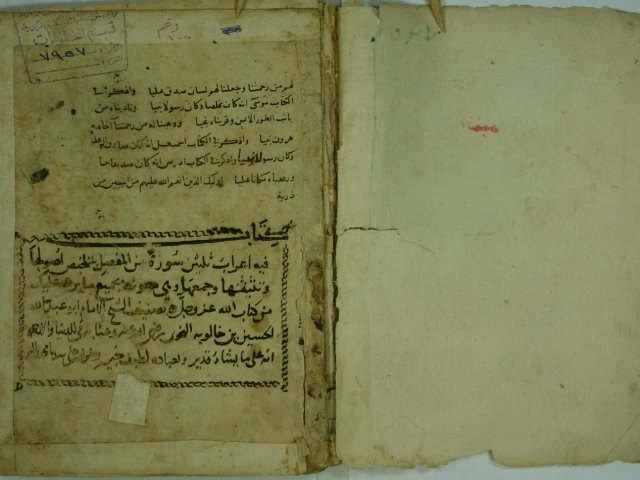 قسم المخطوطات
٧٩٥٧
رقم
لهم من رحمتنا وجعلنا لهم لسان صدق عليا واذكر في
الكتاب موسى انه كان مخلصا وكان رسولا نبيا وناديناه من
جانب الطور الايمن وقربناه نجيا ووهبنا له من رحمتنا اخاه
هرون نبيا واذكر في الكتاب اسمعيل انه كان صادق الوعد
وكان رسولا نبيا واذكر في الكتاب ادريس انه كان صديقا نبيا
ورفعناه مكانا عليا اوليك الذين انعم الله عليهم من النبيين من
ذرية
كتاب
فيه اعراب ثلثين سورة من المفصل بتلخيص اصولها
وتثنيتها وجمعها جميع عليك
من كتاب الله عز وجل تصنيف الشيخ الامام ابو عبد الله
الحسين بن خالويه النحوي في الدنيا والاخرة
انه على ما يشاء قدير وبعباده لطيف خبير